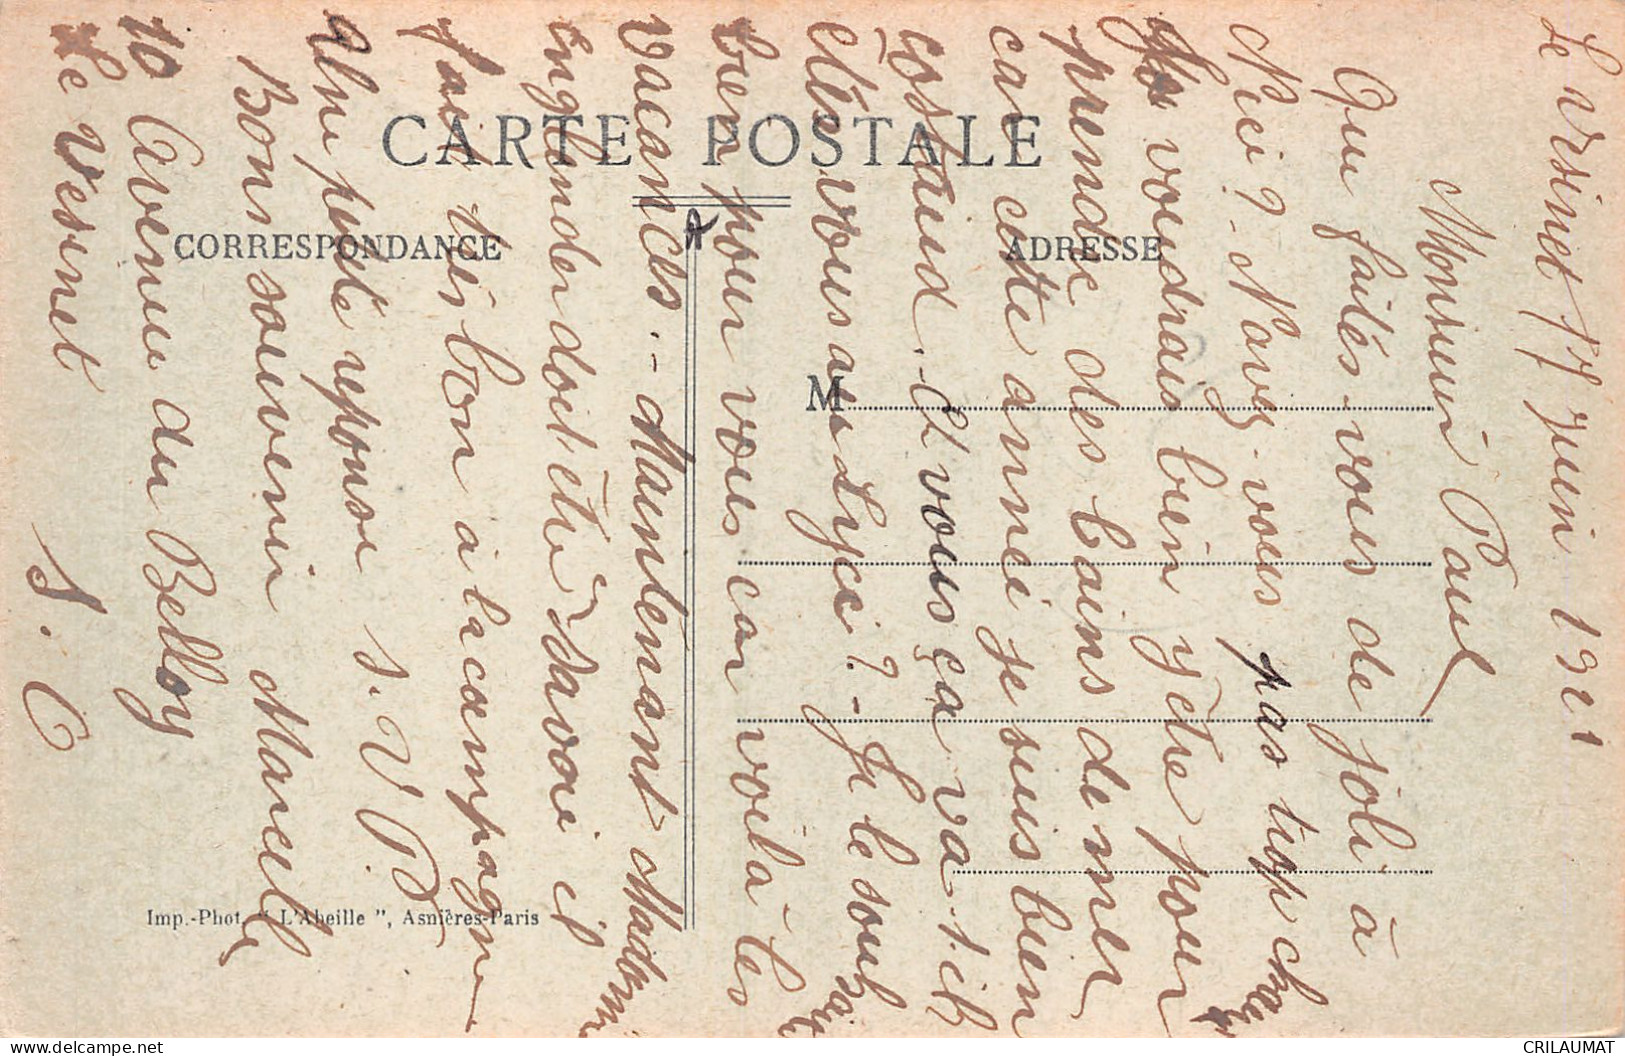 CARTE POSTALE
CORRESPONDANCE
ADRESSE
M
Imp.-Phot. "L'Abeille", Asnières-Paris
Le Vésinet 17 Juin 1921
Monsieur Paul
Que faites-vous de joli à
Navez-vous pas trop chaud
voudrais bien y être pour
prendre des bains de mer
car cette année je suis bien
costaud. Et vous ça va-t-il
êtes vous au Lycée? - Je le souh
bien pour vous car voilà les
vacances. - Maintenant Madame
Englender doit être savoir il
fait très bon à la campagne
Une petite réponse s. V. P.
Bon souvenir Marcelle
10 Avenue du Belloy
Le Vésinet
S. C
CRILAUMAT